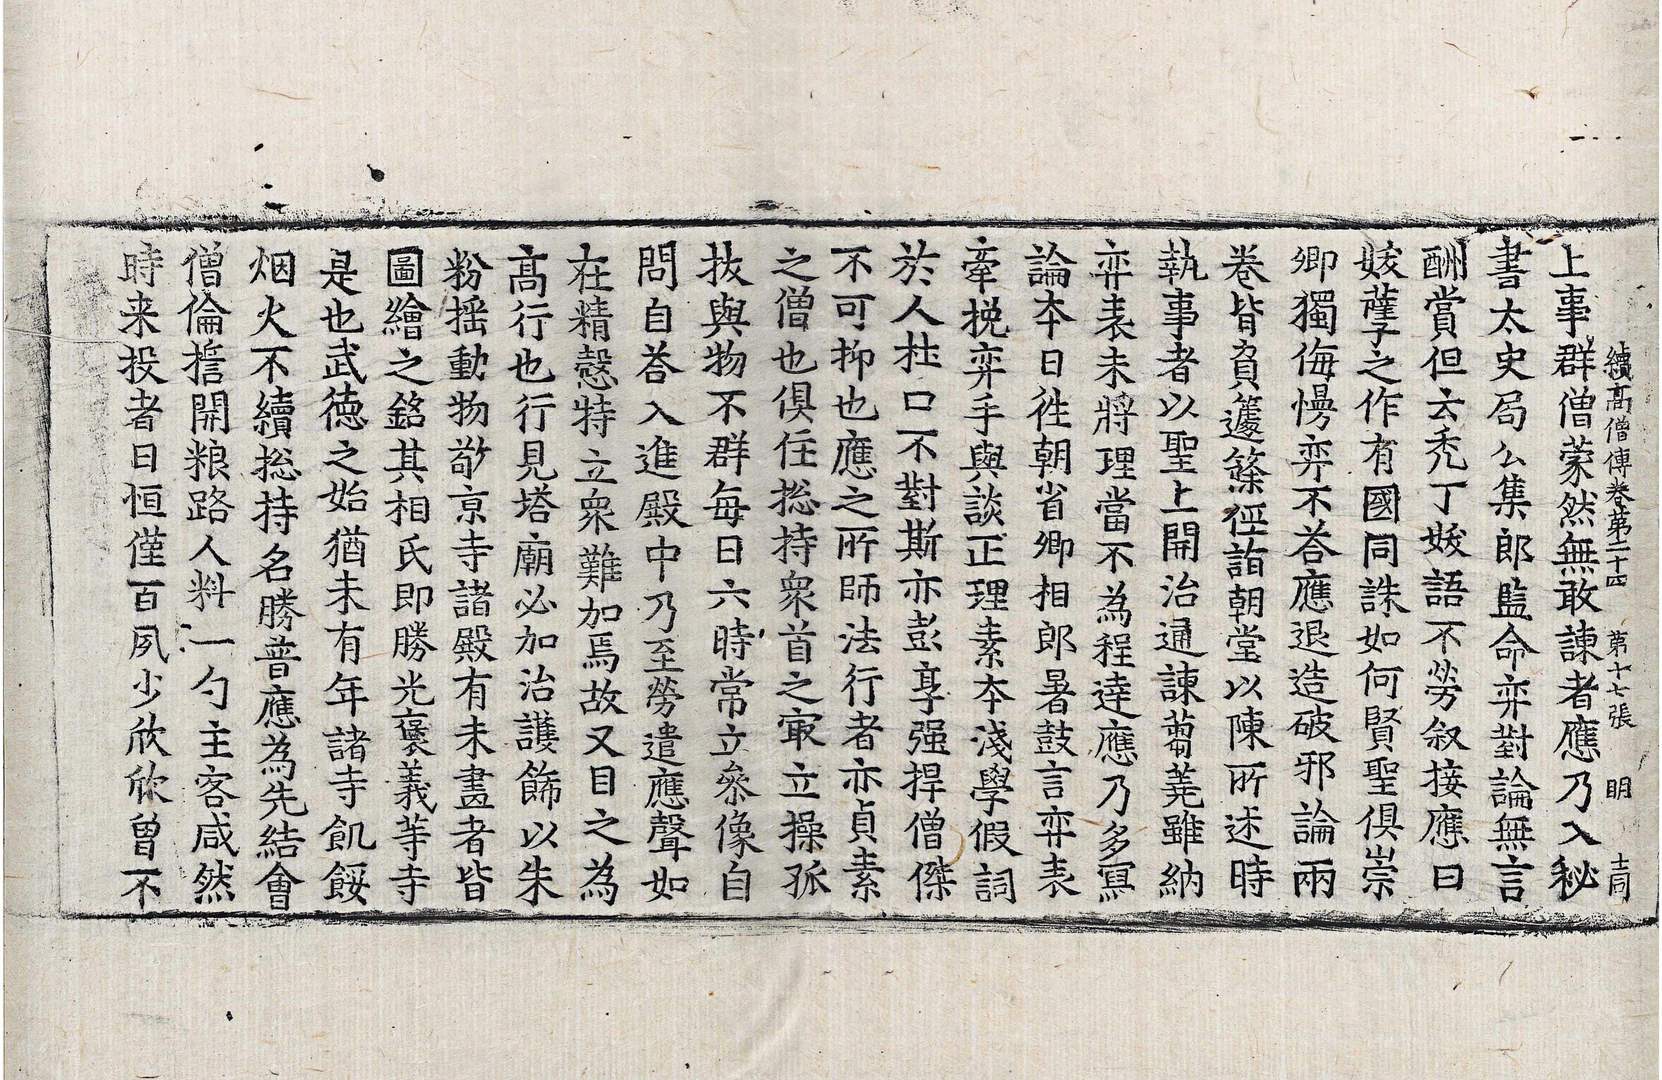 續高僧傳卷第二十四　第十七張　明　士同
上事群僧蒙然無敢諫者應乃入秘
書太史局公集郎監命弈對論無言
酬賞但云禿丁妖語不勞叙接應曰
妖孽之作有國同誅如何賢聖俱崇
卿獨侮慢弈不荅應退造破邪論兩
卷皆負籧篨徑詣朝堂以陳所述時
執事者以聖上開治通諫蒭蕘雖納
弈表未將理當不為程達應乃多寫
論夲日徃朝省卿相郎署鼓言弈表
牽挽弈手與談正理素夲淺學假詞
於人杜口不對斯亦彭享强捍僧傑
不可抑也應之所師法行者亦貞素
之僧也俱住捴持衆首之㝡立操孤
拔與物不群每日六時常立叅像自
問自荅入進殿中乃至勞遣應聲如
在精慤特立衆難加焉故又目之為
髙行也行見塔廟必加治護飾以朱
粉摇動物敬京寺諸殿有未畫者皆
圖繪之銘其相氏即勝光褒義等寺
是也武徳之始猶未有年諸寺飢餒
烟火不續捴持名勝普應為先結會
僧倫誓開粮路人料一勺主客咸然
時来投者日恒僅百夙少欣欣曾不